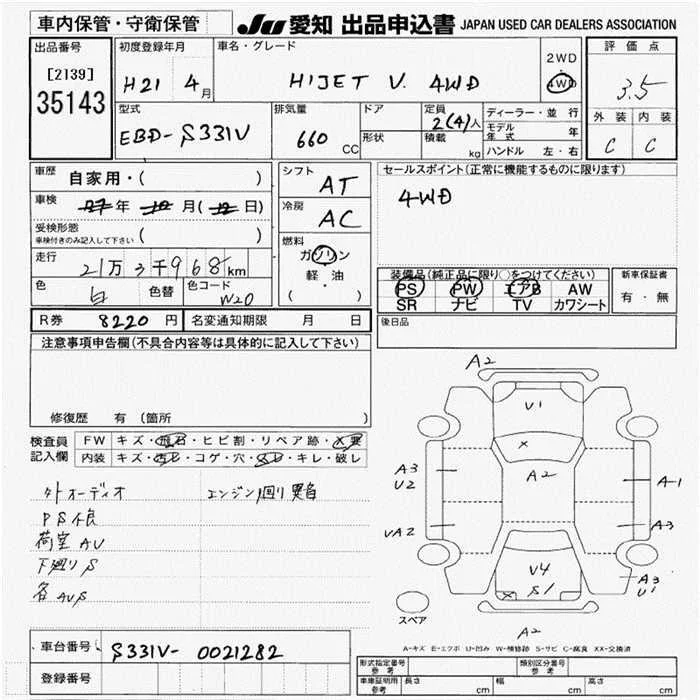 車内保管・守衛保管
JU 愛知 出品申込書 JAPAN USED CAR DEALERS ASSOCIATION
出品番号
[2139]
35143
初度登録年月
H21 4月
車名・グレード
HIJET V. 4WD
2WD
4WD
評価点
3.5
外装 内装
C C
型式
EBD-S331V
排気量
660 CC
ドア
形状
定員
2(4)人
積載
kg
ディーラー・並行
モデル年式 年
ハンドル 左・右
車歴
自家用・( )
車検
27年 10月(12日)
受検形態
車検付きのみ記入して下さい ( )
走行
21万3千968km
色
白
色替
色コード
W20
シフト
AT
冷房
AC
燃料
ガソリン
軽油
( ・ )
セールスポイント(正常に機能するものに限ります)
4WD
装備品(純正品に限り○をつけてください)
PS PW エアB AW
SR ナビ TV カワシート
新車保証書
有・無
R券 8220円
名変通知期限 月 日
後日品
注意事項申告欄(不具合内容等は具体的に記入して下さい)
修復歴 有(箇所 )
検査員記入欄
FW キズ・飛石・ヒビ割・リペア跡・X要
内装 キズ・汚レ・コゲ・穴・スレ・キレ・破レ
外オーディオ
エンジン廻り異音
PS不良
荷室AU
下廻りS
各AUS
A2
V1
X
A2
A3
U2
UA2
A-1
A3
A3
U1
V4
S1
X
A2
スペア
A-キズ E-エクボ U-凹み W-補修跡 S-サビ C-腐食 XX-交換済
車台番号 S331V-0021282
登録番号
形式指定番号
参考
類別区分番号
参考
車庫証明用
参考
長さ cm 幅 cm 高さ cm